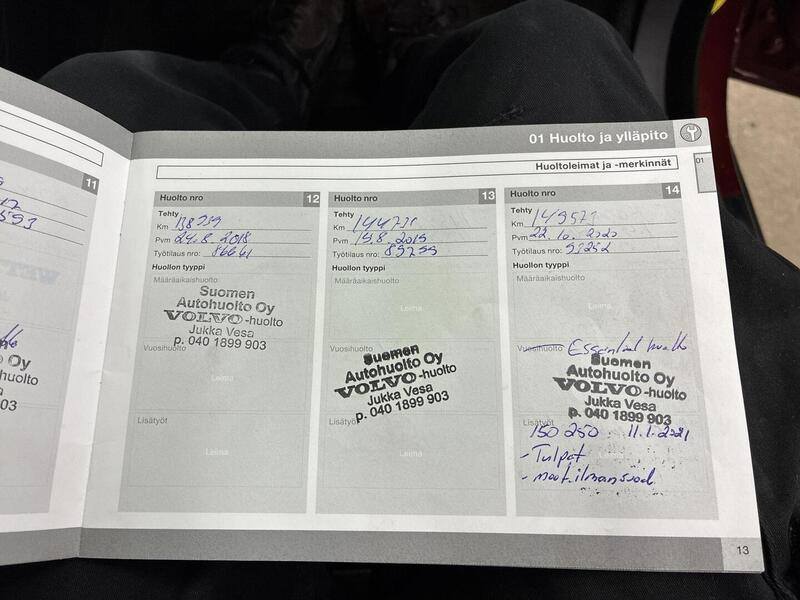 01 Huolto ja ylläpito
Huoltoleimat ja -merkinnät
01
11
593
Oy
-huolto
903
Huolto nro 12
Tehty
Km 138759
Pvm 24.8.2018
Työtilaus nro: 86661
Huollon tyyppi
Määräaikaishuolto
Suomen
Autohuolto Oy
VOLVO-huolto
Jukka Vesa
p. 040 1899 903
Vuosihuolto
Leima
Lisätyöt
Leima
Huolto nro 13
Tehty
Km
Pvm 19.8.2019
Työtilaus nro:
Huollon tyyppi
Määräaikaishuolto
Leima
Vuosihuolto
Suomen
Autohuolto Oy
VOLVO-huolto
Jukka Vesa
p. 040 1899 903
Lisätyöt
Leima
Huolto nro 14
Tehty
Km 149573
Pvm 22.10.2020
Työtilaus nro: 93252
Huollon tyyppi
Määräaikaishuolto
Leima
Vuosihuolto Essential huolto
Suomen
Autohuolto Oy
VOLVO-huolto
Jukka Vesa
p. 040 1899 903
Lisätyöt
150 250 11.1.2021
- Tulpat
- moot.ilmansuod.
Leima
13